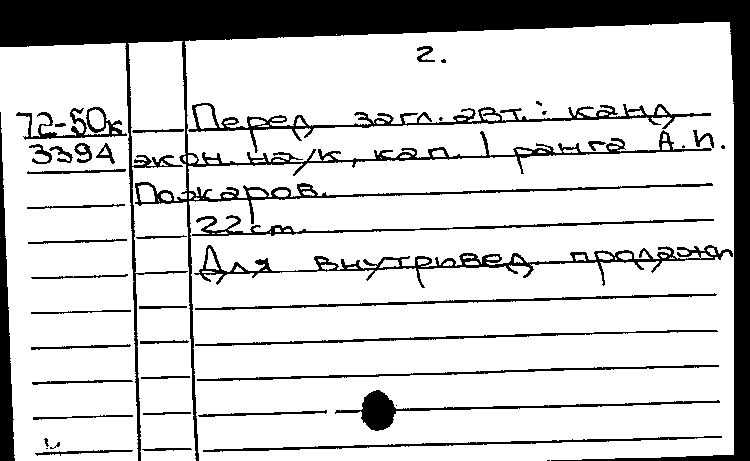 2.
72-50к Перед загл. авт.: канд.
3394 экон. наук, кап. 1 ранга А. П.
Пожаров.
22 см.
Для внутривед. продажи